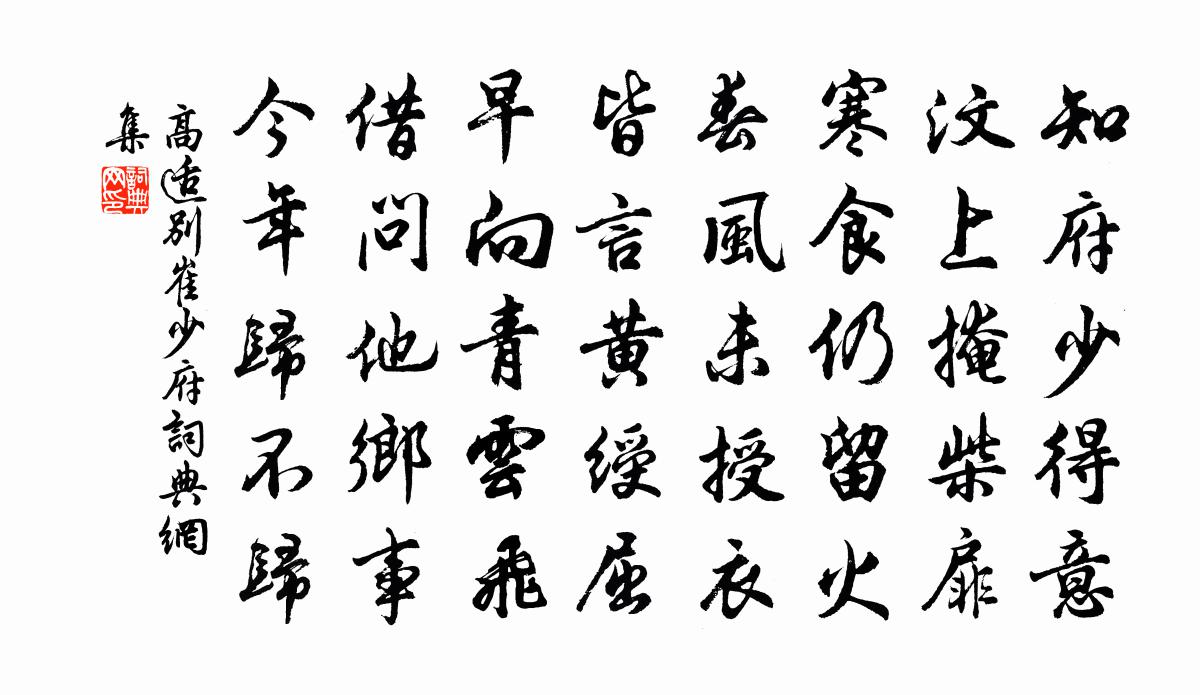 知府少得意
汶上掩柴扉
寒食仍留火
春風未授衣
皆言黄綬屈
早向青雲飛
借問他鄉事
今年歸不歸
高適別崔少府詞典網
集
詞典
网印